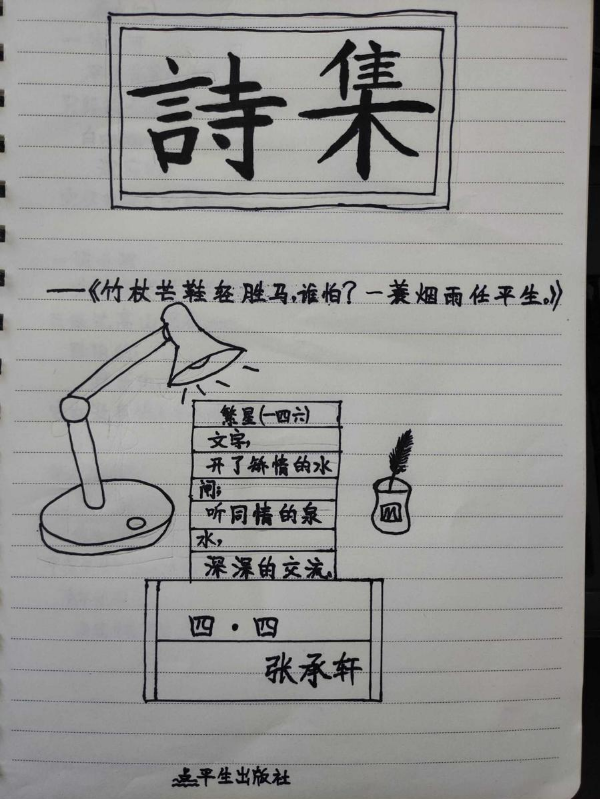 詩集
——《竹杖芒鞋轻胜马,谁怕?一蓑烟雨任平生。》
繁星(一四六)
文字,
开了矫情的水
闸;
听同情的泉
水,
深深的交流。
四·四
张承轩
平生出版社